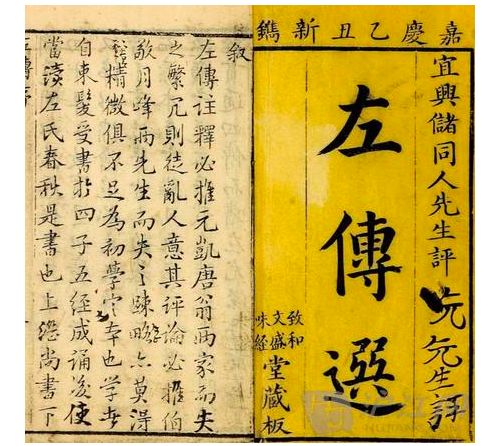 嘉慶乙丑新鐫
宜興儲同人先生評
生評
左傳選
致和
文盛
味經
堂藏板
叙
左傳註釋必推元凱唐翁兩家而失
之繁冗則徒亂人意其評論必推伯
敬月峰兩先生而失之踈略亦莫淂
精微俱不足為初學定本也學者
自束髮受書於四子五經成誦後使
當讀左氏春秋是書也上繼尚書下